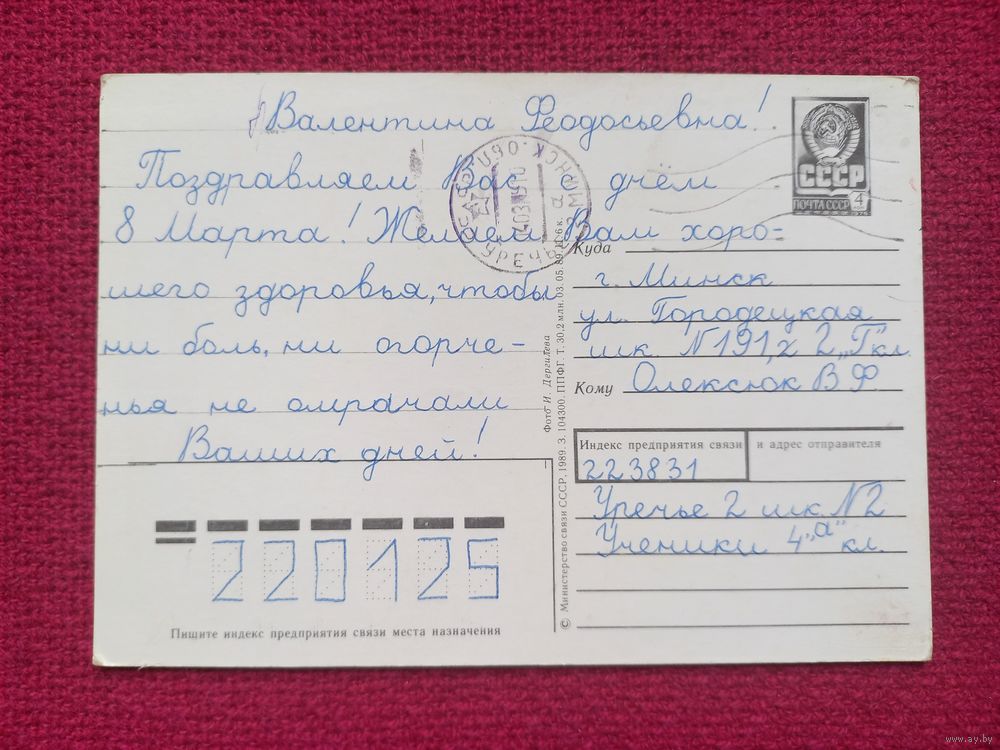 Валентина Феодосьевна!
Поздравляем Вас днём
8 Марта! Желаем Вам хоро-
шего здоровья, чтобы
ни боль, ни огорче-
нья не омрачали
Ваших дней!
СССР
ПОЧТА СССР 4
Куда
г. Минск
ул. Городецкая
шк. N 191, 2 "Г" кл.
Кому Олексюк В Ф
Индекс предприятия связи и адрес отправителя
223831
Уречье 2 шк. N2
Ученики 4 "а" кл.
220125
Пишите индекс предприятия связи места назначения
Фото И. Дергилева
© Министерство связи СССР, 1989. З. 104300. ППФГ. Т. 30,2 млн. 03.05.89. Ц. 6 к.
www.ay.by